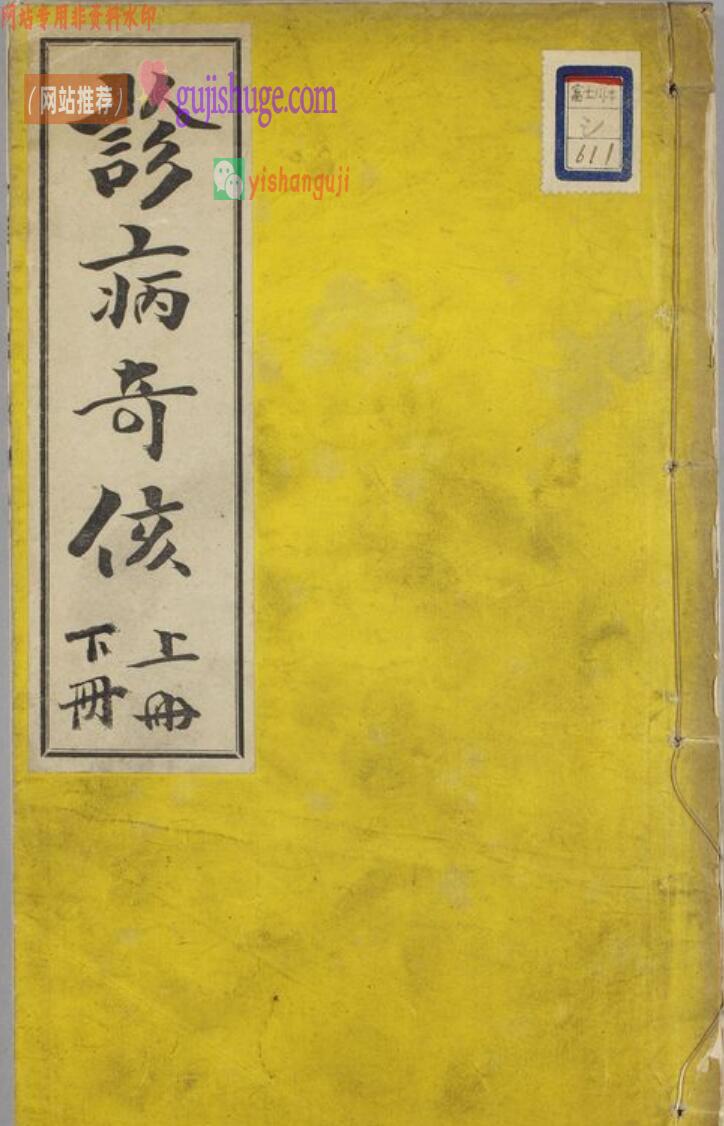 网站专用非资料水印
（网站推荐）
gujishuge.com
yishanguji
診病奇侅
上冊
下冊
富士川本
シ
611